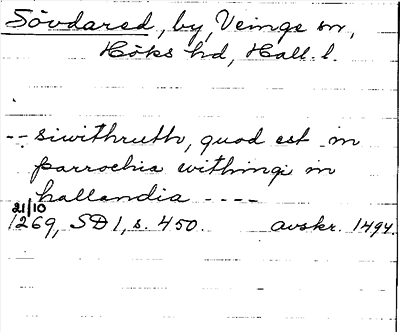 Sövdared, by, Veinge sn,
Höks hd, Hall. l.
-- siwithruth, quod est in
parrochia withingi in
hallandia ----
21/10
1269, SD 1, s. 450. avskr. 1494.